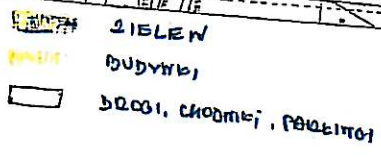 ZIELEŃ
BUDYNKI
DROGI, CHODNIKI, PARKINGI